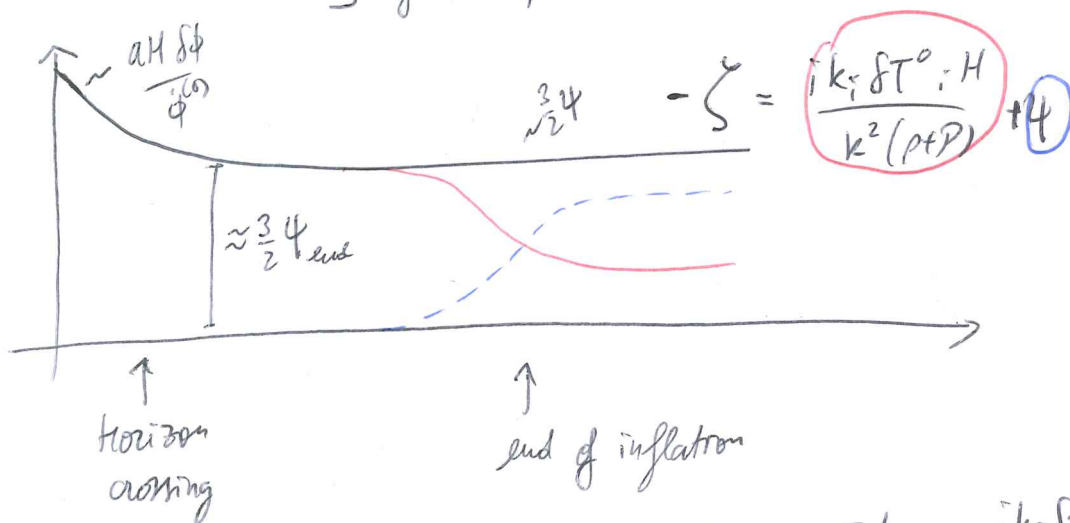 ~ aHδϕ / ϕ̇⁽⁰⁾
~ 3/2 ψ
- ζ = i kᵢ δT⁰ᵢ H / k²(ρ+P) + ψ
≈ 3/2 ψ end
Horizon
crossing
end of inflation